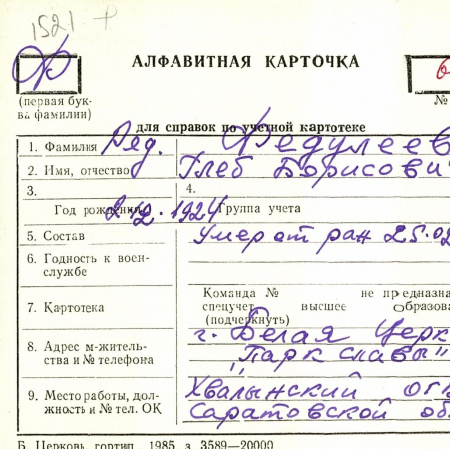 1521
Ф
АЛФАВИТНАЯ КАРТОЧКА
(первая бук-
ва фамилии)
№
для справок по учетной картотеке
1. Фамилия Ряд. Федулеев
2. Имя, отчество Глеб Борисови
3. 4.
Год рождения 2.12.1924 Группа учета
5. Состав Умер от ран 25.02
6. Годность к воен-
службе
Команда № не предназна
7. Картотека спецучет высшее образова
(подчеркнуть)
8. Адрес м-житель-
ства и № телефона г. Белая Церк
"Парк славы"
9. Место работы, дол-
жность и № тел. ОК Хвалынский
Саратовской об
Б. Церковь, гортип., 1985, з. 3589—20000